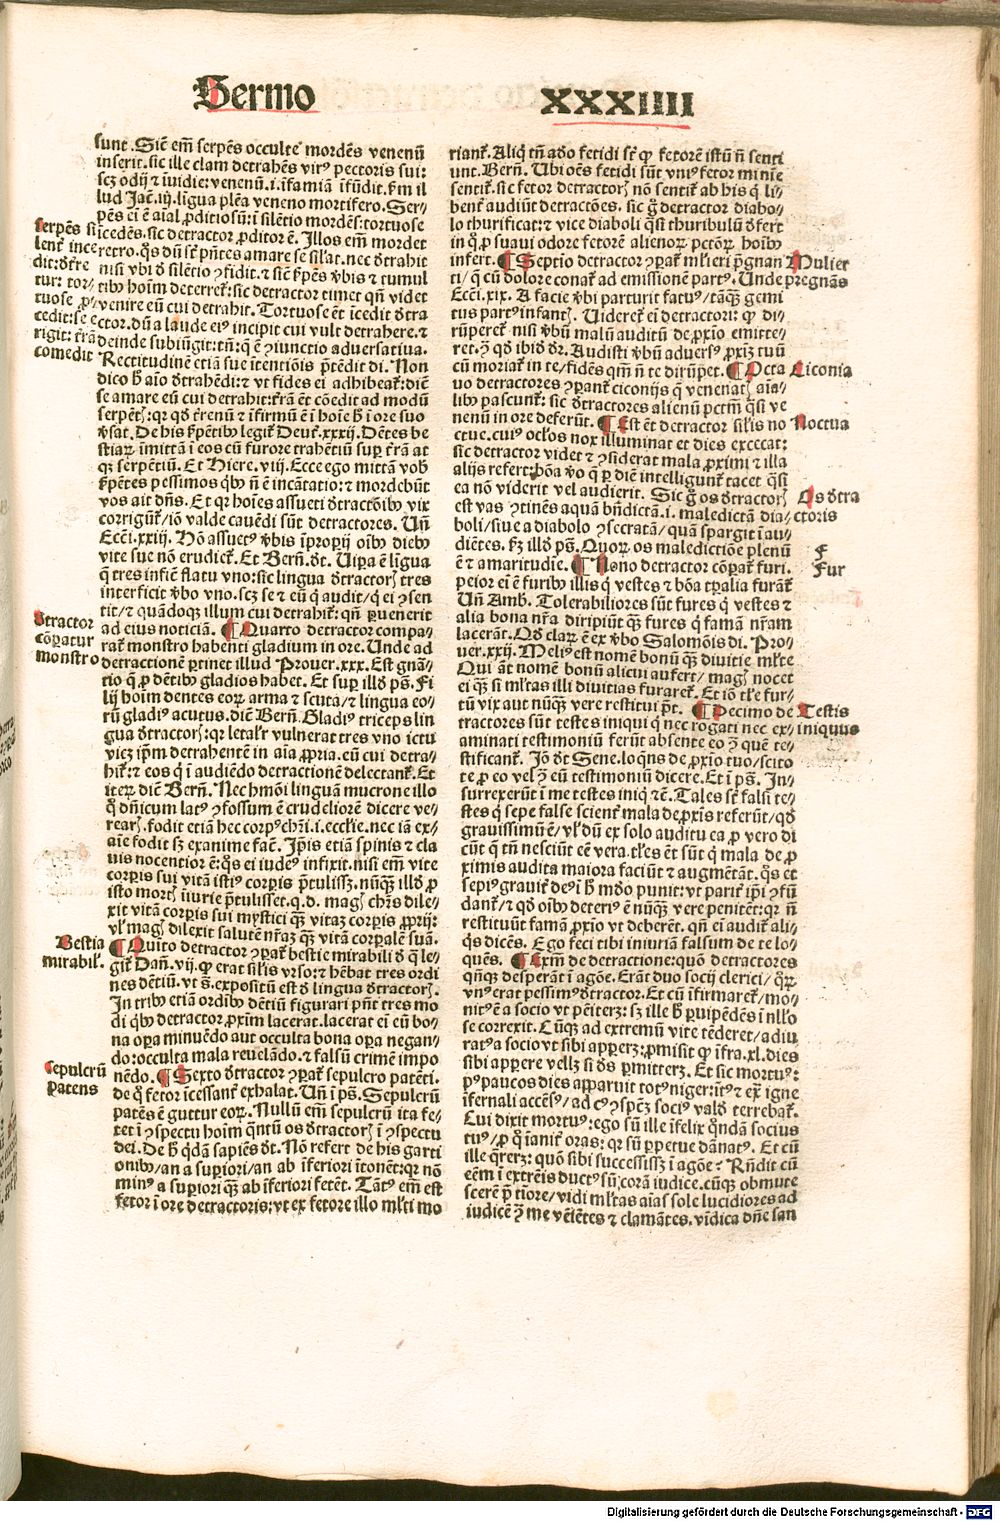 Sermo XXXIIII
sunt. Sic̄ em̄ serpēs occulte mordēs venenū
inserit. sic ille clam detrahēs virꝰ pectoris sui:
scꝫ odij ⁊ īuidie: venenū .i. īfamiā īfūdit. ẜm il
lud Jac̄. iij. līgua plēa veneno mortifero. Ser-
pēs ei ē aīal ꝓditiosū: ī silētio mordēs: tortuose
īcedēs. sic detractor ꝓditor ē. Illos em̄ mordet
retro. q̄s dū st̄ pn̄tes amare se sīlat. nec dr̄ahit
nisi vbi ꝺ silētio ꝯfidit. ⁊ sic̄ ẜpēs v̄bis ⁊ tumul
tibꝰ hoīm deterret̄: sic detractor timet qn̄ videt
venire eū cui detrahit. Tortuose et̄ īcedit ꝺtra
ctor. dū a laude eiꝰ incipit cui vult detrahere. ⁊
deinde subiūgit: tn̄: q̄ ē ꝯiunctio aduersatiua.
Rectitudinē etiā sue ītentiōis p̄tēdit di. Non
dico h̄ aīo ꝺtrahēdi: ⁊ vt fides ei adhibeat̄: diē
se amare eū cui detrahit: t̄rā et̄ cōedit ad modū
serpētꝭ: qꝛ qꝺ t̄renū ⁊ īfirmū ē ī hoīe h̄ ī ore suo
v̄sat. De his ẜpētibꝰ legit̄ Deut̄. xxxij. Dētes be
stiaꝝ īmittā ī eos cū furore trahētiū suꝑ t̄rā at
qꝫ serpētiū. Et Hiere. viij. Ecce ego mittā vob̄
ẜpētes pessimos qͥbꝰ nō ē īcātatio: ⁊ mordebūt
vos ait dn̄s. Et qꝛ hoīes assueti ꝺtractōībꝰ vix
corrigūt̄/ iō valde cauēdi sūt detractores. Un̄
Ecci. xxiij. Hō assuetꝰ v̄bis īproꝑij oībꝰ diebꝰ
vite sue nō erudiet̄. Et Bern̄. ꝺt. Uiꝑa ē līgua
q̄ tres infic̄ flatu vno: sic lingua ꝺtractorꝭ tres
interficit v̄bo vno. scꝫ se ⁊ eū q̇ audit/ q̇ ei ꝯsen
tit/ ⁊ quādoqꝫ illum cui detrahit̄: qn̄ ꝑuenerit
ad eius noticiā. ¶ Quarto detractor compa-
rat̄ monstro habenti gladium in ore. Unde ad
detractionē ꝑtinet illud Prouer. xxx. Est gnā-
tio q̄ ꝓ dētibꝰ gladios habet. Et suꝑ illꝺ ps̄. Fi
lij hoīm dentes eoꝝ arma ⁊ scuta/ ⁊ lingua eo-
rū gladiꝰ acutus. diē Bern̄. Gladiꝰ triceps lin
gua ꝺtractorꝭ: qꝛ letalr̄ vulnerat tres vno ictu
vicꝫ ip̄m detrahentē in aīa ꝓpria. eū cui detra-
hit̄: ⁊ eos q̇ ī audiēdo detractionē delectant̄. Et
iteꝝ diē Bern̄. Nec hmōi linguā mucrone illo
q̇ dn̄icum latꝰ ꝯfossum ē crudeliorē dicere ve-
rearꝭ. fodit etiā hec corpꝰ chr̄i .i. eccl̄ie. nec iā ex-
aīe fodit sꝫ exanime fac̄. Ip̄is etiā spinis ⁊ cla
uis nocentior ē: q̄s ei iudeꝰ infixit. nisi em̄ vite
corꝑis sui vitā istiꝰ corꝑis p̄tulissꝫ. nūq̄ꝫ illꝺ ꝓ
isto mortꝭ iurie p̄tulisset. q. d. magꝭ chr̄s dile-
xit vitā corꝑis sui mystici q̄ꝫ vitaꝫ corꝑis ꝓprij:
vl̓ magꝭ dilexit salutē nr̄aꝫ q̄ꝫ vitā corꝑalē suā.
¶ Quīto detractor ꝯꝑat̄ bestie mirabili ꝺ q̄ le-
git̄ Dan̄. vij. ꝙ erat siīlis vrso: ⁊ hēbat tres ordi
nes dētiū. vt s̄. expositū est ꝺ līgua ꝺtractorꝭ.
In tribꝰ etiā ordībꝰ dētiū figurari pn̄t tres mo
di qͥbꝰ detractor ꝓxīm lacerat. lacerat ei cū bo-
na oꝑa minuēdo aut occulta bona oꝑa negan-
do: occulta mala reuelādo. ⁊ falsū crimē impo
nēdo. ¶ Sexto ꝺtractor ꝯꝑat̄ sepulcro patēti.
de q̇ fetor īcessant̄ exhalat. Un̄ ī ps̄. Sepulcrū
patēs ē guttur eoꝝ. Nullū em̄ sepulcrū ita fe-
tet ī ꝯspectu hoīm qn̄tū os ꝺtractorꝭ ī ꝯspectu
dei. De h̄ q̇dā sapiēs ꝺt. Nō refert de his garti
onibꝰ/ an a suꝑiori/ an ab īferiori ītonēt: qꝛ nō
minꝰ a suꝑiori q̄ꝫ ab īferiori fetēt. Tātꝰ em̄ est
fetor ī ore detractoris: vt ex fetore illo ml̓ti mo
serpēs si
lent̄ ince
dit: ꝺtr̄e
tur: tor-
tuose ꝓ-
cedit: se e
rigit: t̄rā
comedit
ꝺtractor
cōꝑatur
monstro
Bestia
mirabil̓.
Sepulcrū
patens
riant̄. Aliq̇ tn̄ adeo fetidi st̄ ꝙ fetorē istū n̄ senti
unt. Bern̄. Ubi oēs fetidi sūt vniꝰ fetor minīe
sentit̄. sic fetor detractorꝭ nō sentit̄ ab his q̇ li-
bent̄ audiūt detractōes. sic g̊ detractor diabo-
lo thurificat: ⁊ vice diaboli q̄si thuribulū ꝺfert
in q̇ ꝓ suaui odore fetorē alienoꝝ pctōꝝ hoībꝰ
infert. ¶ Septīo detractor ꝯꝑat̄ ml̓ieri p̄gnan
ti/ q̄ cū dolore conat̄ ad emissionē partꝰ. Unde
Ecci. xix. A facie v̄bi parturit fatuꝰ/ tāq̄ꝫ gemi
tus partꝰ infantꝭ. Uideret̄ ei detractori: ꝙ di-
rūperet̄ nisi v̄bū malū auditū de ꝓxīo emitte-
ret. ꝯ qꝺ ibid̄ dr̄. Audisti v̄bū aduersꝰ ꝓxiꝫ tuū
cū moriat̄ in te/ fidēs qm̄ n̄ te dirūpet. ¶ Octa
uo detractores ꝯꝑant̄ ciconijs q̄ venenatꝭ aīa-
libꝰ pascunt̄: sic ꝺtractores alienū pctm̄ q̄si ve
nenū in ore deferūt. ¶ Est et̄ detractor siīlis no
ctue. cuiꝰ ocl̓os nox illuminat et dies excecat:
sic detractor videt ⁊ ꝯsiderat mala ꝓximi ⁊ illa
alijs refert: bōa v̊o q̄ ꝑ diē intelligunt̄ tacet q̄si
ea nō viderit vel audierit. Sic g̊ os ꝺtractorꝭ
est vas ꝯtinēs aquā bn̄dictā .i. maledictā dia-
boli/ siue a diabolo ꝯsecratā/ quā spargit ī au-
diētes. ẜꝫ illꝺ ps̄. Quoꝝ os maledictiōe plenū
ē ⁊ amaritudie. ¶ Nono detractor cōꝑat̄ furi.
peior ei ē furibꝰ illis q̇ vestes ⁊ bōa tꝑalia furāt̄
Un̄ Amb. Tolerabiliores sūt fures q̇ vestes ⁊
alia bona nr̄a diripiūt q̄ꝫ fures q̇ famā nr̄am
lacerāt. Qꝺ claꝝ ē ex v̄bo Salomōis di. Pro-
uer. xxij. Meliꝰ est nomē bonū q̄ꝫ diuitie ml̓te
Qui at̄ nomē bonū alicui aufert/ magꝭ nocet
ei q̄ꝫ si ml̓tas illi diuitias furaret̄. Et iō tl̓e fur-
tū vix aut nūq̄ꝫ vere restitui pt̄. ¶ Decimo de
tractores sūt testes iniqui q̇ nec rogati nec ex-
aminati testimoniū ferūt absente eo ꝯ quē te-
stificant̄. Iō ꝺt Sene. loqn̄s de ꝓxīo tuo/ scito
te ꝓ eo vel ꝯ eū testimoniū dicere. Et ī ps̄. In-
surrexerūt ī me testes iniq̇ ⁊c̄. Tales st̄ falsi te-
stes q̇ sepe false scient̄ mala de ꝓxīs referūt/ qꝺ
grauissimū ē/ vl̓ dū ex solo auditu ea ꝓ vero di
cūt q̄ tn̄ nesciūt eē vera. tl̓es et̄ sūt q̇ mala de ꝓ
ximis audita maiora faciūt ⁊ augmētāt. q̄s et̄
sepiꝰ grauit̄ deꝰ ī h̄ mꝺo punit: vt parit̄ ip̄i ꝯfū
dant̄/ ⁊ qꝺ oībꝰ deteriꝰ ē nūq̄ꝫ vere penitēt: qꝛ n̄
restituūt famā ꝓxīo vt deberēt. qn̄ ei audit̄ ali-
q̇s dicēs. Ego feci tibi iniuriā falsum de te lo-
quēs. ¶ Exm̄ de detractione: quō detractores
qn̄qꝫ desperāt ī agōe. Erāt duo socij clerici/ q̊ꝝ
vnꝰ erat pessimꝰ ꝺtractor. Et cū īfirmaret̄/ mo-
nitꝰ ē a socio vt pēiterꝫ: sꝫ ille h̄ ꝑuipēdēs ī nll̓o
se correxit. Cūqꝫ ad extremū vite tēderet/ adiu
ratꝰ a socio vt sibi apꝑerꝫ: ꝓmisit ꝙ īfra. xl. dies
sibi apꝑere vellꝫ si ds̄ ꝑmitterꝫ. Et sic mortuꝰ:
pꝰ paucos dies apparuit totꝰ niger: īt̄ꝰ ⁊ ex̄ igne
īfernali accēsꝰ/ ad cꝰ ꝯspēꝫ sociꝰ valꝺ terrebat̄.
Cui dixit mortuꝰ: ego sū ille īfelix q̄ndā socius
tuꝰ/ ꝓ q̇ īanit̄ oras: qꝛ sū ꝑpetue dānatꝰ. Et cū
ille q̄rerꝫ: quō sibi successissꝫ ī agōe? Rn̄dit cū
eēm ī extrēis ductꝰ sū corā iudice. cūqꝫ obmute
scerē p̄ tīore/ vidi ml̓tas aīas sole lucidiores ad
iudicē ꝯ me vēiētes ⁊ clamātes. vīdica dn̄e san
Mulier
pregnās
Ciconia
Noctua
Os ꝺtra
ctoris
F
Fur
Testis
iniquus
Digitalisierung gefördert durch die Deutsche Forschungsgemeinschaft - DFG